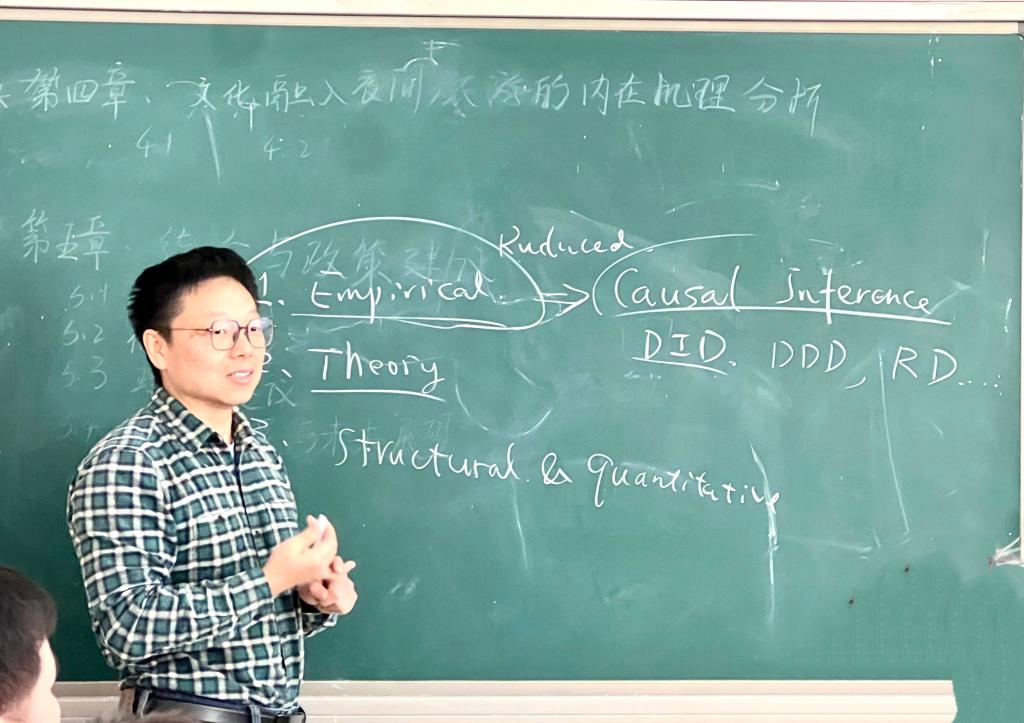 第四章、文化融入夜间旅游的内在机理分析
4.1 4.2
第五章、结论与政策建议
5.1
Ruduced
1. Empirical. ⇒ Causal Inference
5.2
DID. DDD, RD....
5.3
2、Theory
3、Structural & quantitative